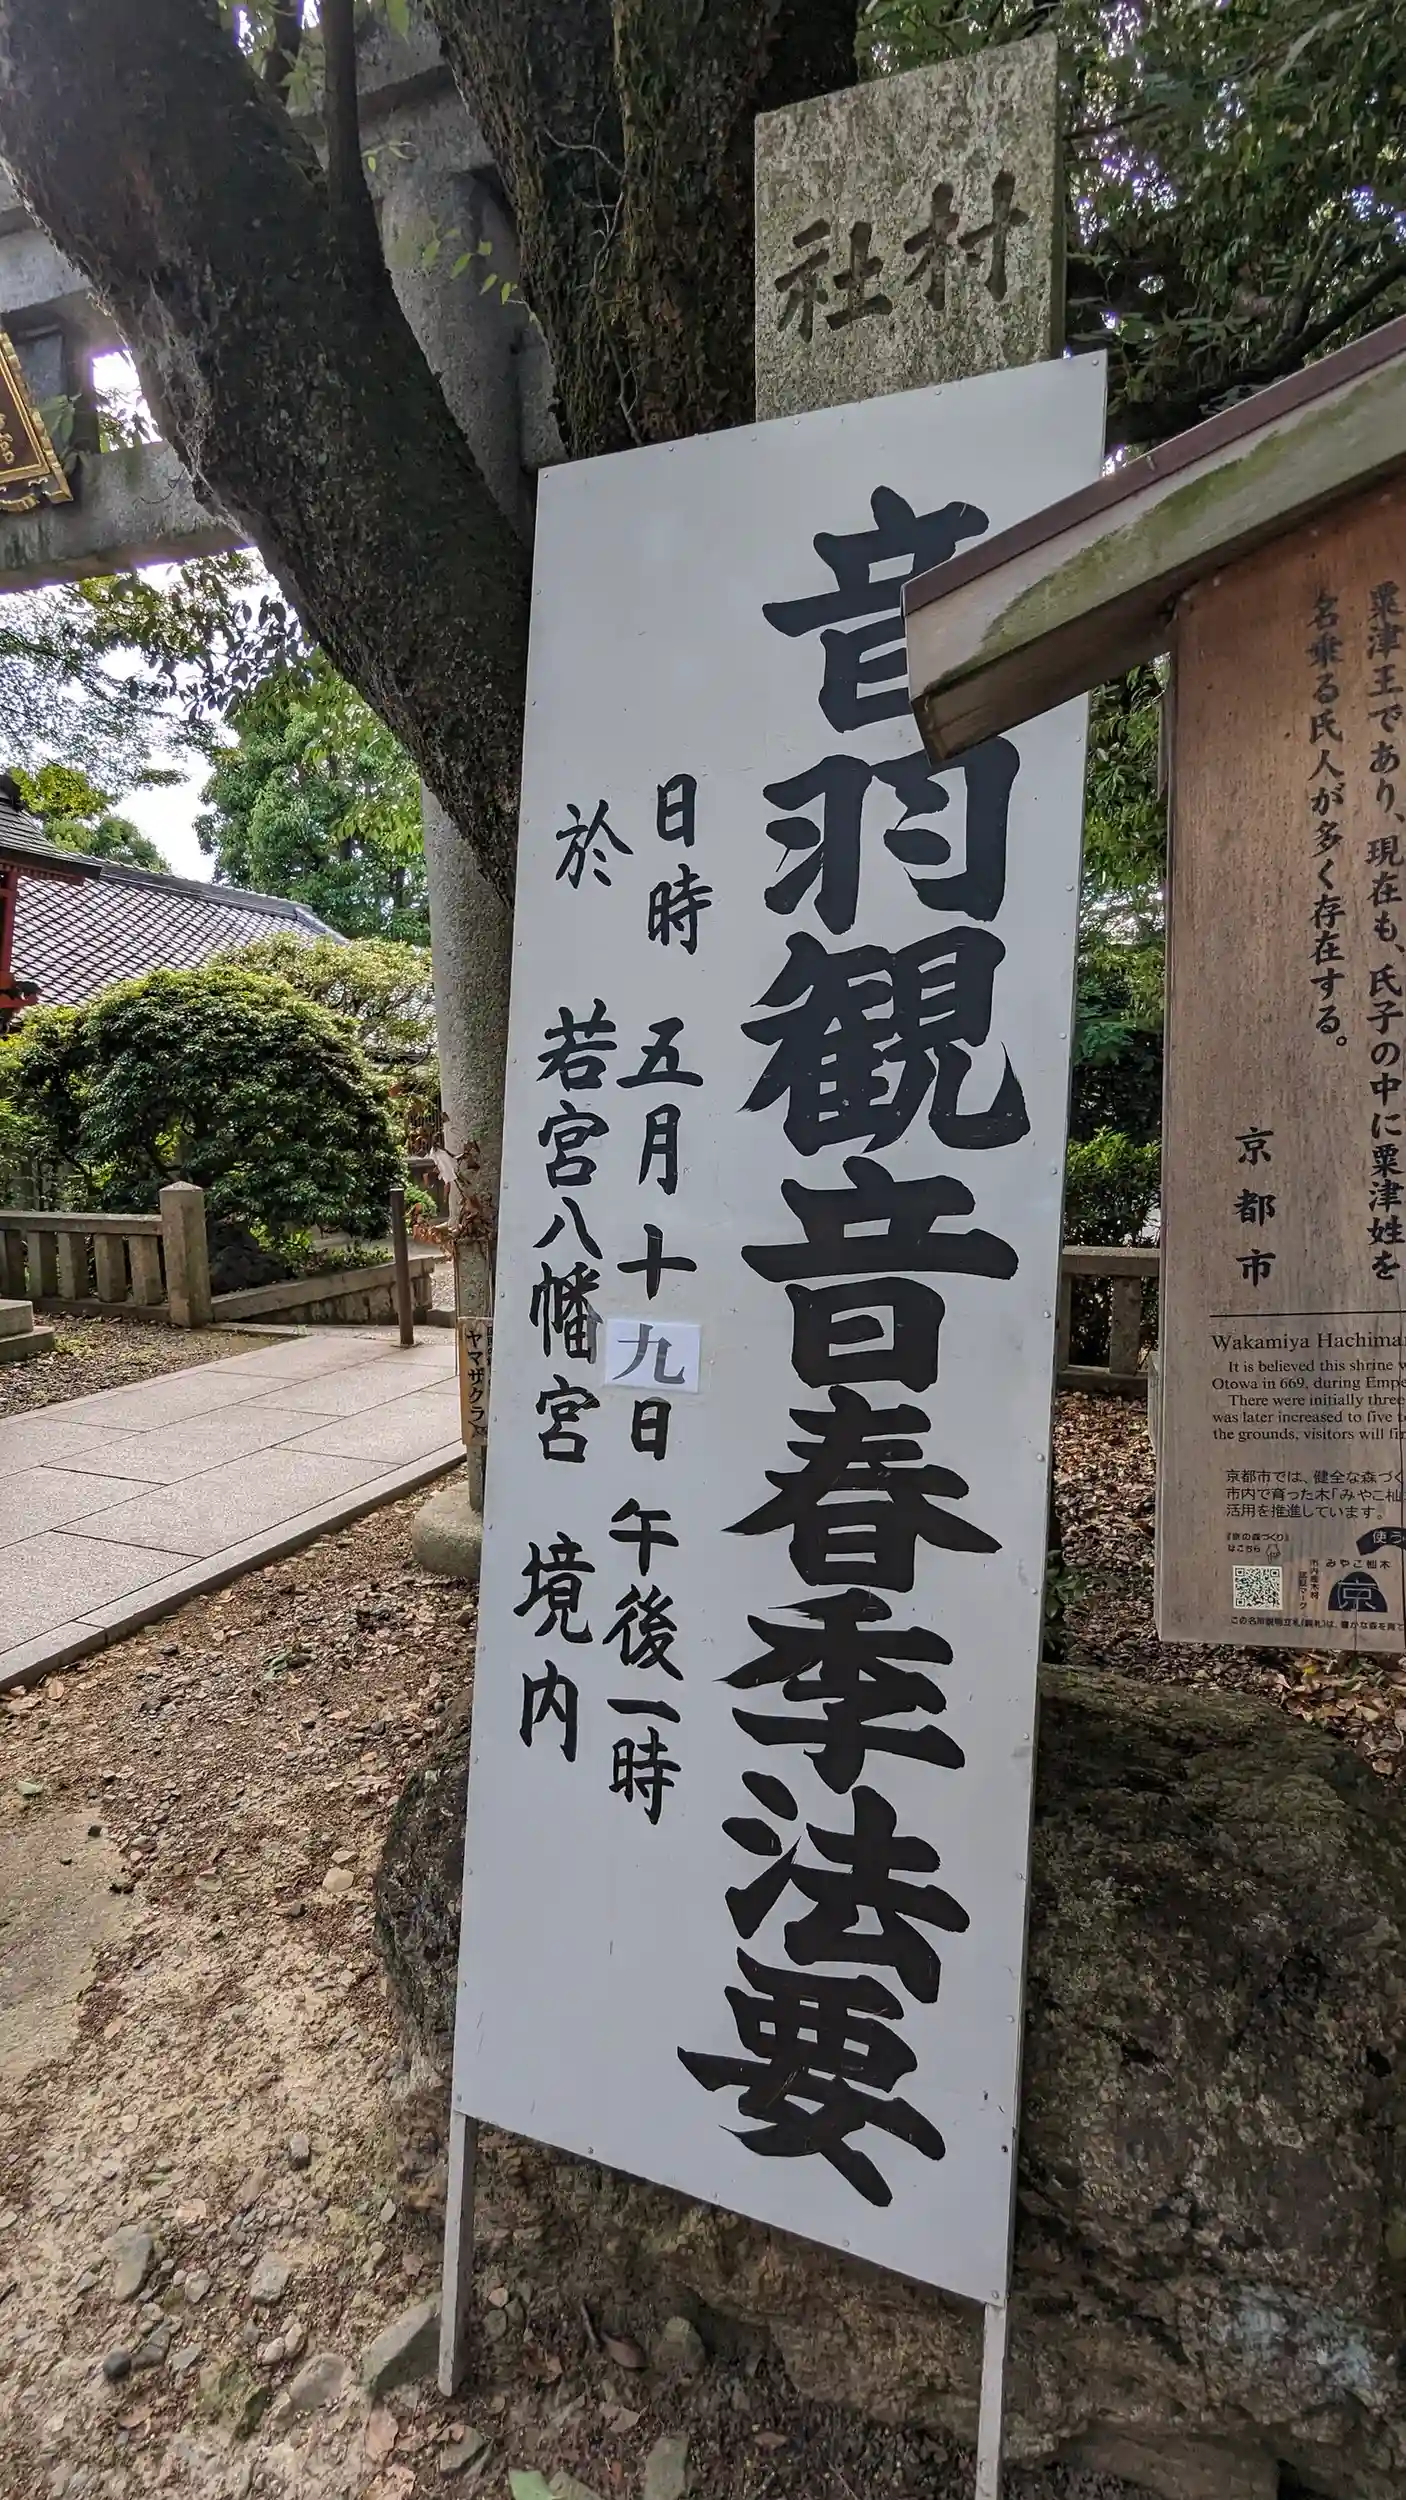 村社
音羽観音春季法要
日時 五月十九日 午後一時
於 若宮八幡宮 境内
ヤマザクラ
粟津王であり、現在も、氏子の中に粟津姓を
名乗る氏人が多く存在する。
京都市
Wakamiya Hachiman
It is believed this shrine w
Otowa in 669, during Empe
There were initially three
was later increased to five t
the grounds, visitors will fin
京都市では、健全な森づく
市内で育った木「みやこ杣
活用を推進しています。
『京の森づくり』
はこちら
使う
みやこ杣木
京